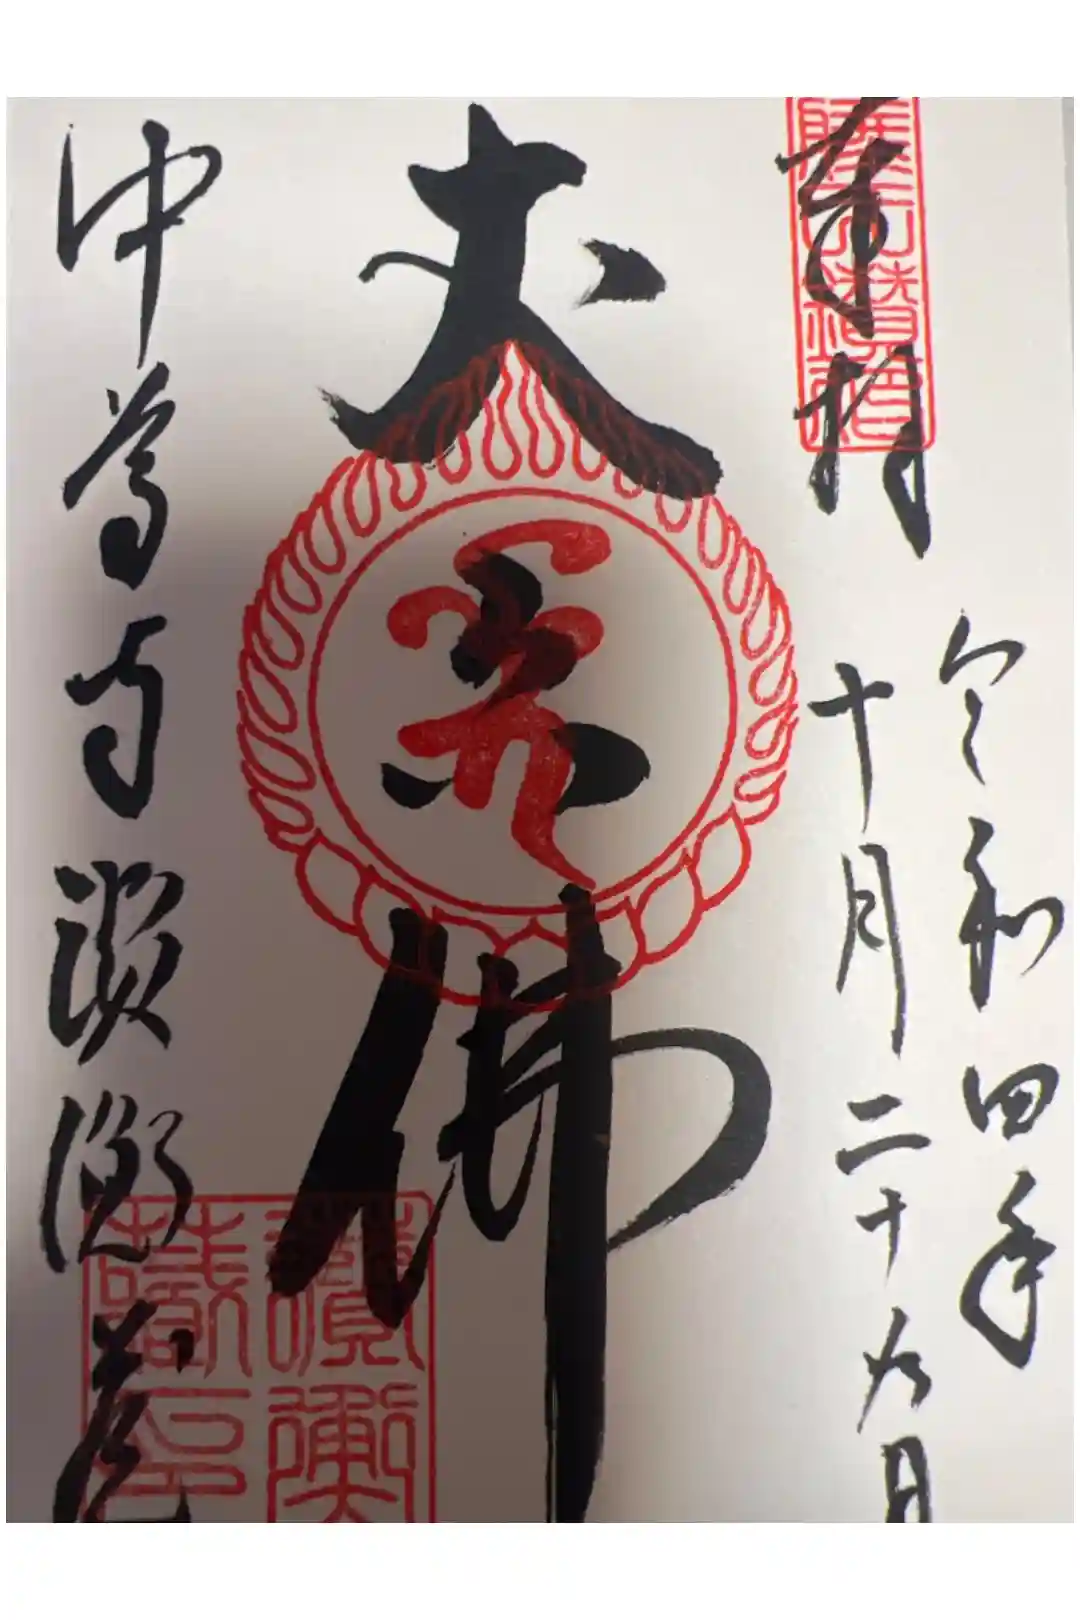 奉拝
令和四年
十月二十九日
丈六佛
中尊寺讃衡蔵
讃衡
蔵印